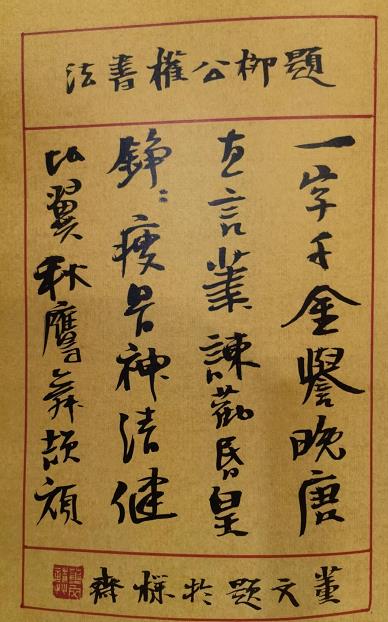 題柳公權書法
一字千金譽晚唐
直言諫昏皇
錚〻瘦骨神清健
比翼秋鷹舞頡頏
董文題於齋